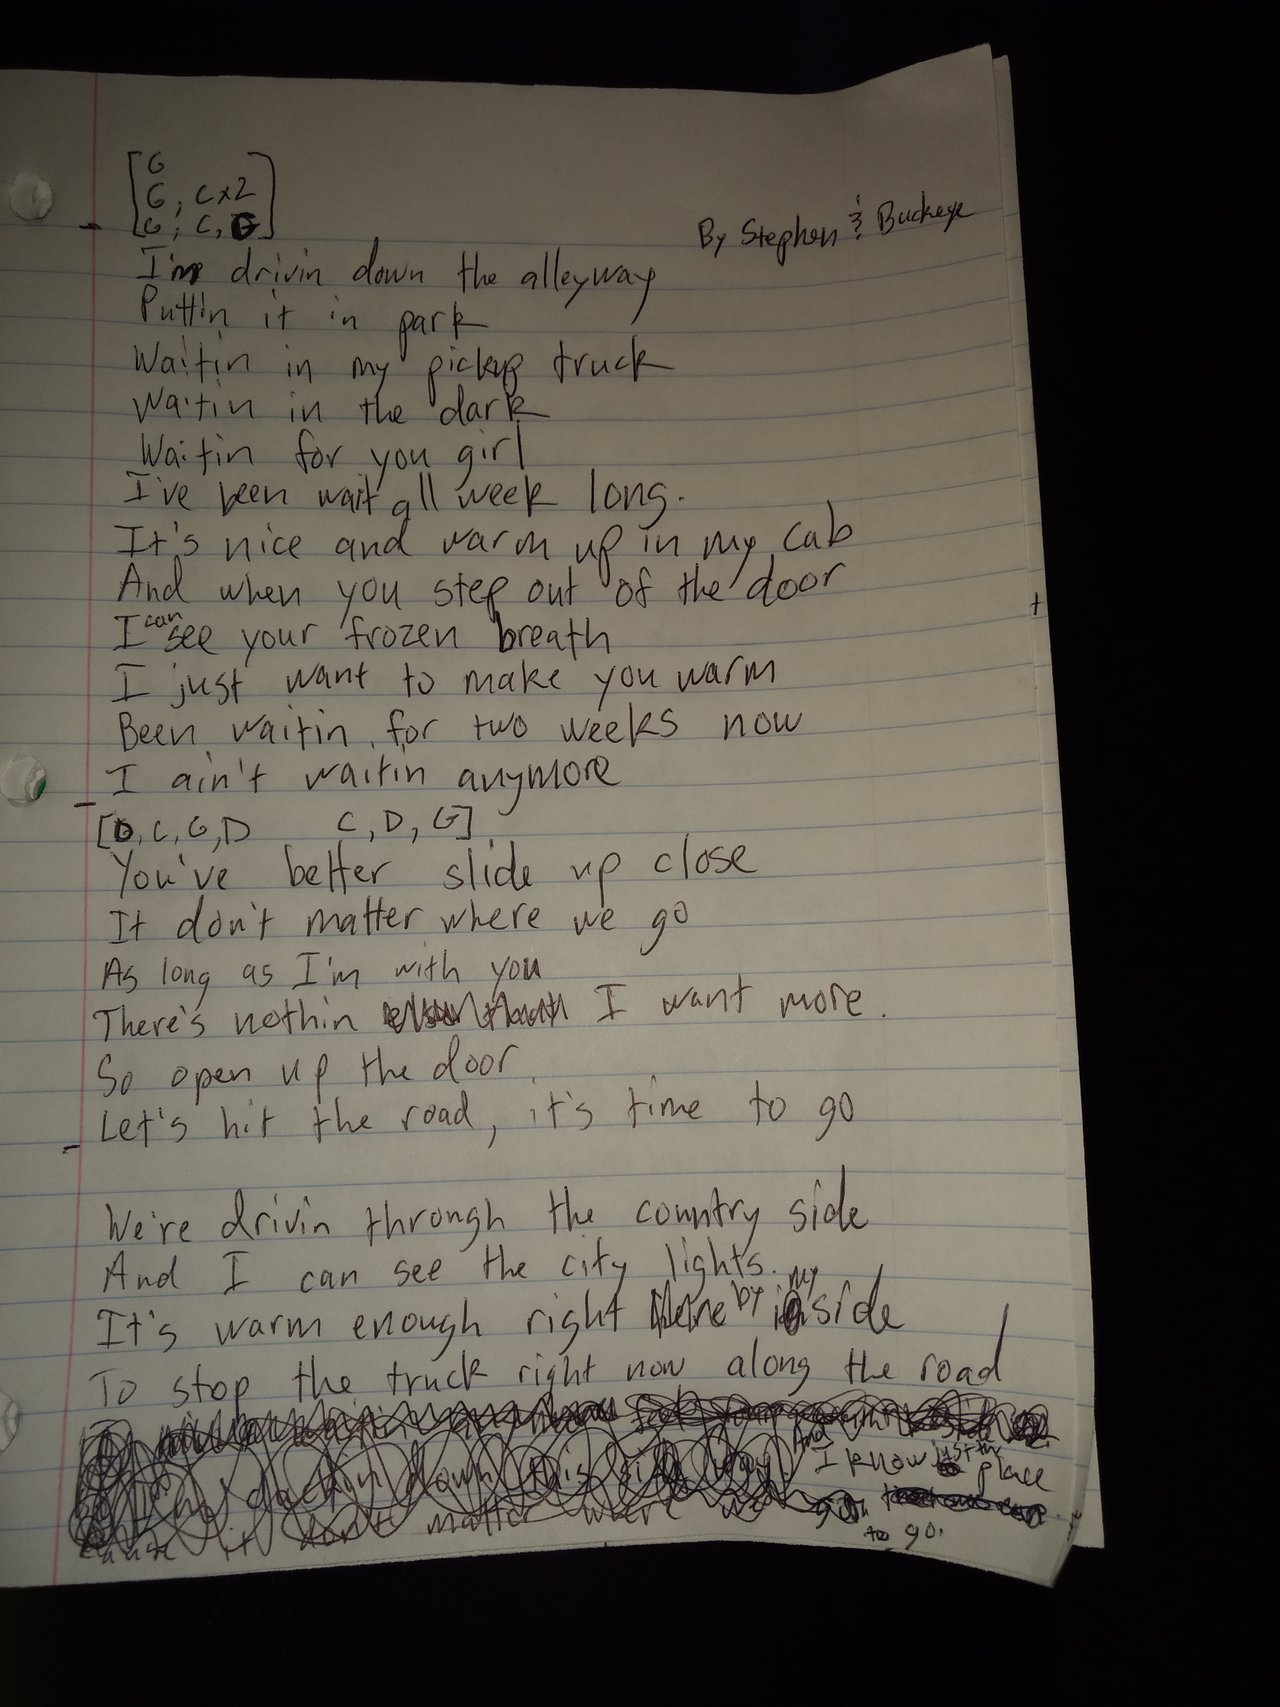 [G
G, C x2
G, C, G]
By Stephen & Buckeye
I'm drivin down the alleyway
Puttin it in park
Waitin in my pickup truck
Waitin in the dark
Waitin for you girl
I've been wait all week long.
It's nice and warm up in my cab
And when you step out of the door
I can see your frozen breath
I just want to make you warm
Been waitin for two weeks now
I ain't waitin anymore
[D, C, G, D C, D, G]
You've better slide up close
It don't matter where we go
As long as I'm with you
There's nothin I want more.
So open up the door
Let's hit the road, it's time to go
We're drivin through the country side
And I can see the city lights.
It's warm enough right here by my side
To stop the truck right now along the road
And I know just the place
to go.